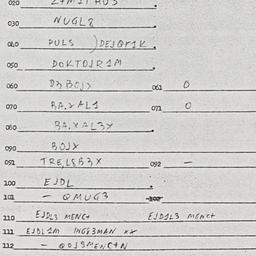 020
030 NUGL8
040 PULS ) DEJQMIK
050 DOKTOJR1M
060 D3BOJX 061 0
070 BA.XAL1 071 0
080 BA.XAL3X
090 BOJX
091 TREL8B3X 092 -
100 EJDL
101 - QMUG3 102
110 EJDL3 MENC+ EJD1L3 MENC+
111 EJDL1M INGG3MAN XX
112 - QOJSMENC+N